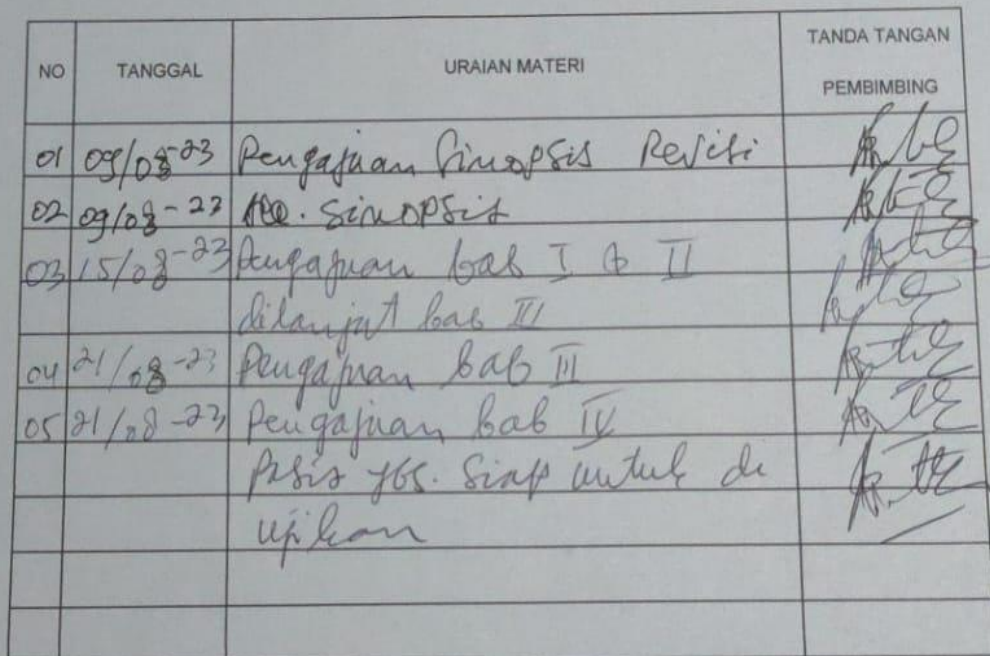 NO TANGGAL URAIAN MATERI TANDA TANGAN PEMBIMBING
01 09/08-23 Pengajuan Sinopsis Revisi
02 09/08-23 Acc. Sinopsis
03 15/08-23 Pengajuan bab I & II
dilanjut bab III
04 21/08-23 Pengajuan bab III
05 21/08-23 Pengajuan bab IV
Pasis ybs. Siap untuk di
ujikan